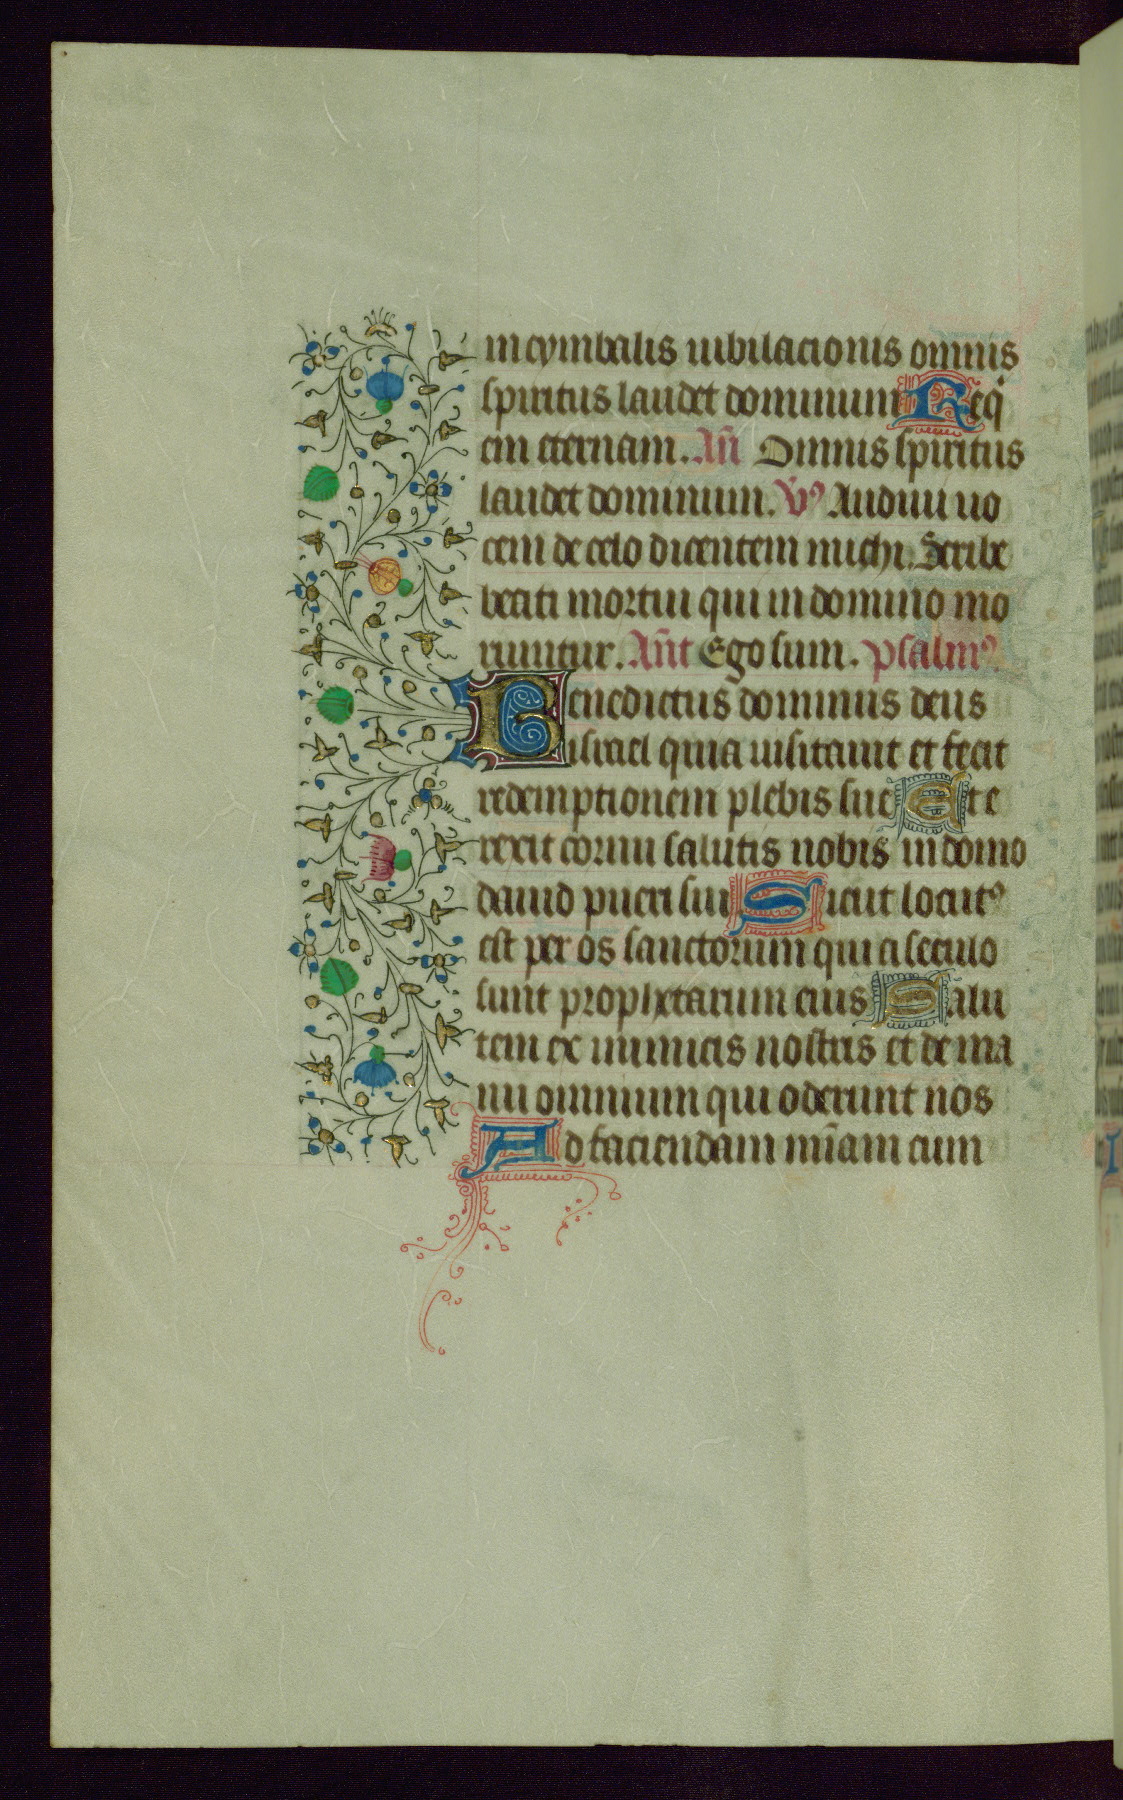 in cymbalis iubilacionis omnis
spiritus laudet dominum Req̃
em eternam. An̄ Omnis spiritus
laudet dominum. V̓ꝰ Audiui uo
cem de celo dicentem michi. Scribe
beati mortui qui in domino mo
riuntur. An̄t Ego sum. psalmꝰ
Benedictus dominus deus
israel quia uisitauit et fecit
redemptionem plebis sue Et e
rexit cornu salutis nobis in domo
dauid pueri sui Sicut locutꝰ
est per os sanctorum qui a seculo
sunt prophetarum eius Salu
tem ex inimicis nostris et de ma
nu omnium qui oderunt nos
Ad faciendam mīam cum